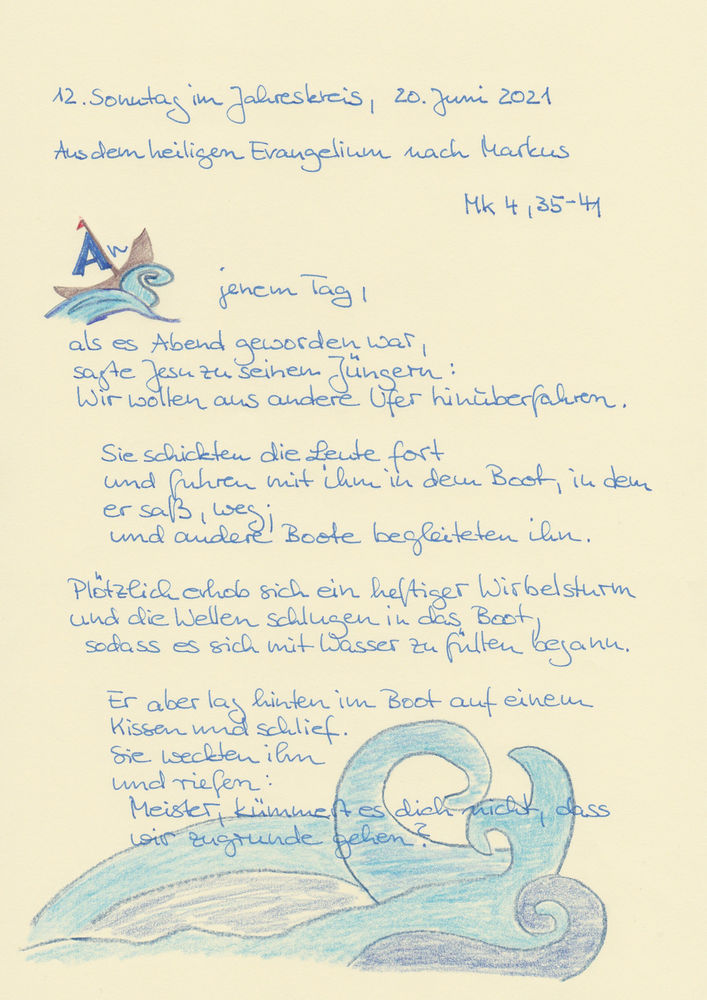 12. Sonntag im Jahreskreis, 20. Juni 2021
Aus dem heiligen Evangelium nach Markus
Mk 4, 35-41
An
jenem Tag,
als es Abend geworden war,
sagte Jesu zu seinem Jüngern:
Wir wollen ans andere Ufer hinüberfahren.
Sie schickten die Leute fort
und fuhren mit ihm in dem Boot, in dem
er saß, weg;
und andere Boote begleiteten ihn.
Plötzlich erhob sich ein heftiger Wirbelsturm
und die Wellen schlugen in das Boot,
sodass es sich mit Wasser zu füllen begann.
Er aber lag hinten im Boot auf einem
Kissen und schlief.
Sie weckten ihn
und riefen:
Meister, kümmert es dich nicht, dass
wir zugrunde gehen?